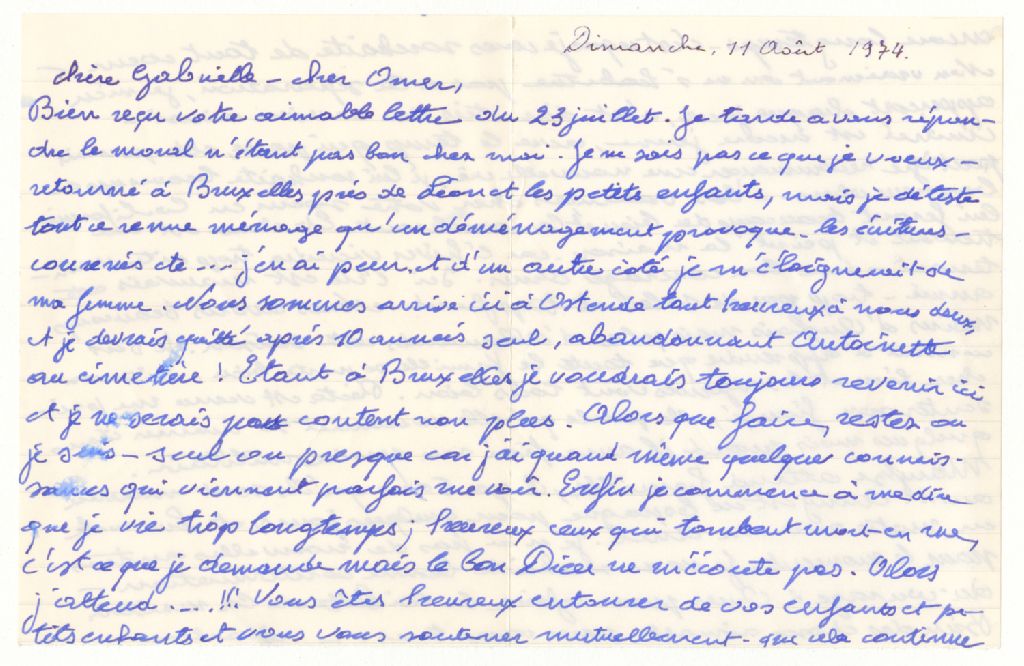 Dimanche, 11 Août 1974.
Chère Gabrielle – cher Omer,
Bien reçu votre aimable lettre du 23 juillet. Je tarde a vous répon-
dre le moral n'étant pas bon chez moi. Je ne sais pas ce que je veux –
retourné à Bruxelles prés de Léon et les petits enfants, mais je déteste
tout ce remue ménage qu'un déménagement provoque. les
etc ... j'en ai peur. Et d'un autre coté je m'éloignerait de
ma femme. Nous sommes arrivé ici à Ostende tout heureux à nous deux,
et je devrais quitté après 10 années seul, abandonnant Antoinette
au cimetière ! Etant à Bruxelles je voudrais toujours revenir ici
et je ne serais pas content non plus. Alors que faire, restez ou
je suis – seul ou presque car j'ai quand même quelques connais-
sances qui viennent parfois me voir. Enfin je commence à me dire
que je vie trôp longtemps ; heureux ceux qui tombent mort en rue,
c'est ce que je demande mais le bon Dieu ne m'écoute pas. Alors
j'attend .... !!! Vous êtes heureux entourer de vos enfants et pe-
tits enfants et vous vous soutener mutuellement – que cela continue